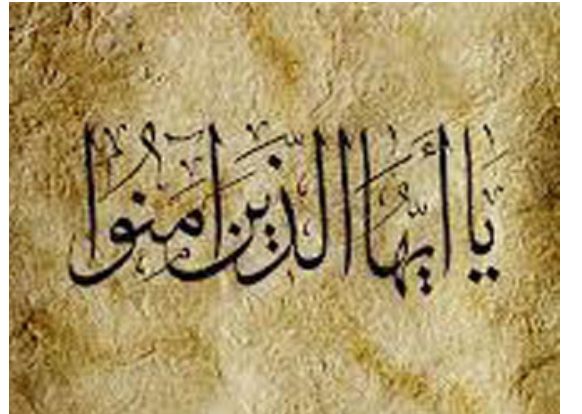 يا أيها الذين امنوا